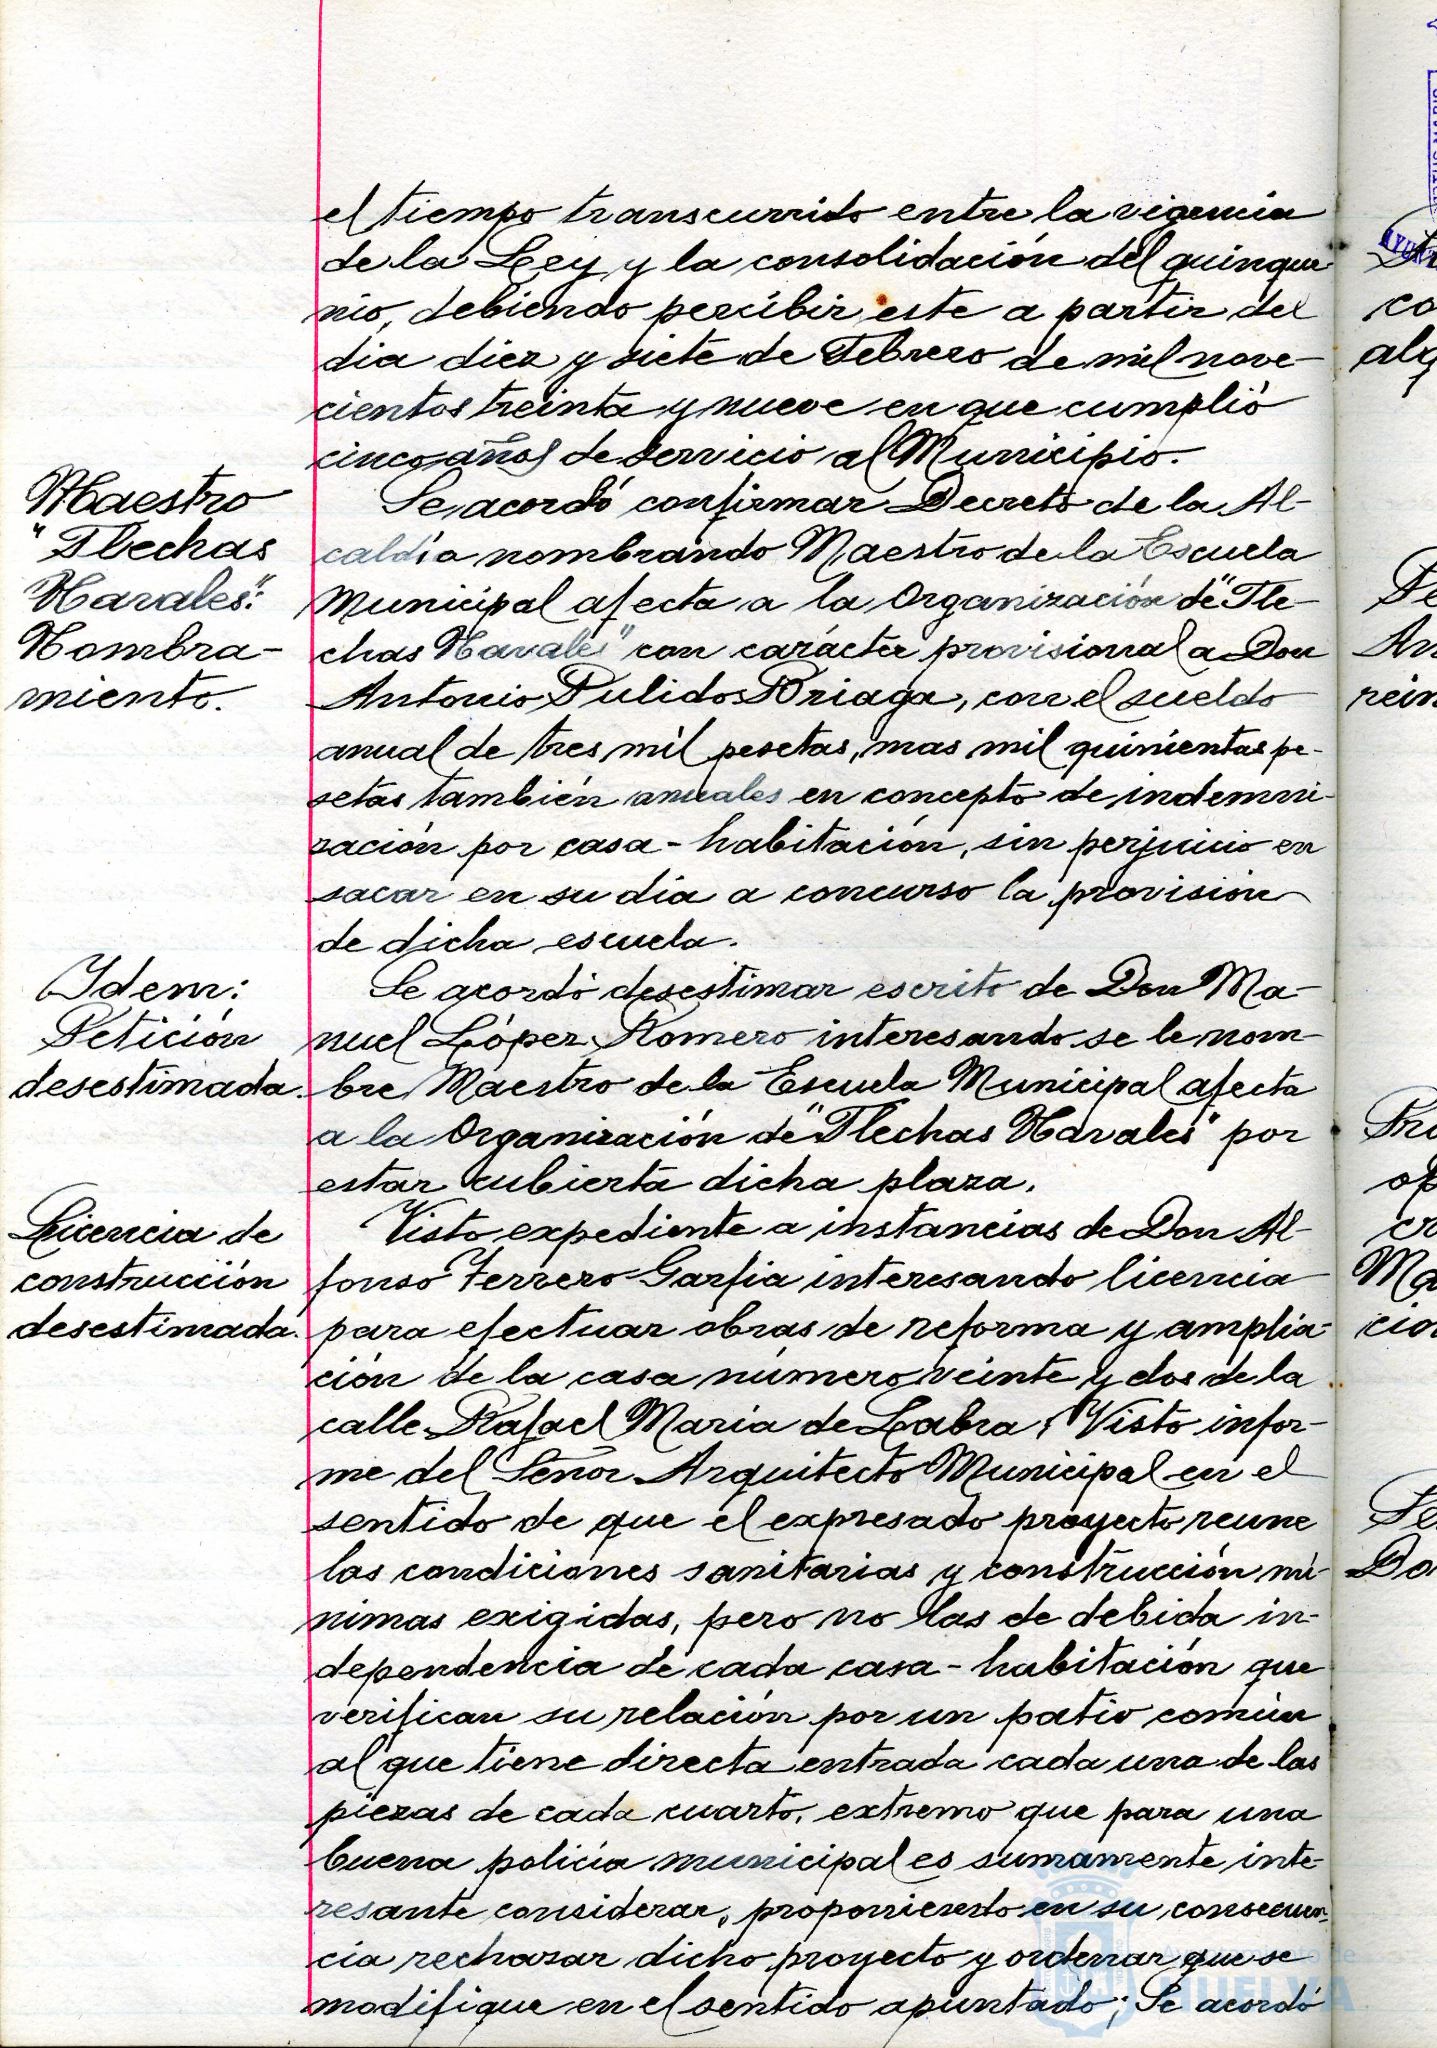 el tiempo transcurrido entre la vigencia
de la Ley y la consolidación del quinque
nio, debiendo percibir este a partir del
dia diez y siete de Febrero de mil nove-
cientos treinta y nueve en que cumplió
cinco años de servicio al Municipio.
Maestro
"Flechas
Navales":
Nombra-
miento.
Se acordó confirmar Decreto de la Al-
caldía nombrando Maestro de la Escuela
Municipal afecta a la Organización de "Fle-
chas Navales" con carácter provisional a Don
Antonio Pulidos Briaga, con el sueldo
anual de tres mil pesetas, mas mil quinientas pe-
setas también anuales en concepto de indemni-
zación por casa-habitación, sin perjuicio en
sacar en su día a concurso la provisión
de dicha escuela.
Idem:
Petición
desestimada.
Se acordó desestimar escrito de Don Ma-
nuel López Romero interesando se le nom-
bre Maestro de la Escuela Municipal afecta
a la Organización de "Flechas Navales" por
estar cubierta dicha plaza.
Licencia de
construcción
desestimada.
Visto expediente a instancias de Don Al-
fonso Ferrero Garfia interesando licencia
para efectuar obras de reforma y amplia-
ción de la casa número veinte y dos de la
calle Rafael María de Labra; Visto infor-
me del Señor Arquitecto Municipal en el
sentido de que el expresado proyecto reune
las condiciones sanitarias y construcción mí-
nimas exigidas, pero no las de debida in-
dependencia de cada casa-habitación que
verifican su relación por un patio común
al que tiene directa entrada cada una de las
piezas de cada cuarto, extremo que para una
buena policía municipal es sumamente inte-
resante considerar, proponiendo en su consecuen-
cia rechazar dicho proyecto y ordenar que se
modifique en el sentido apuntado; Se acordó
Ayuntamiento de
HUELVA